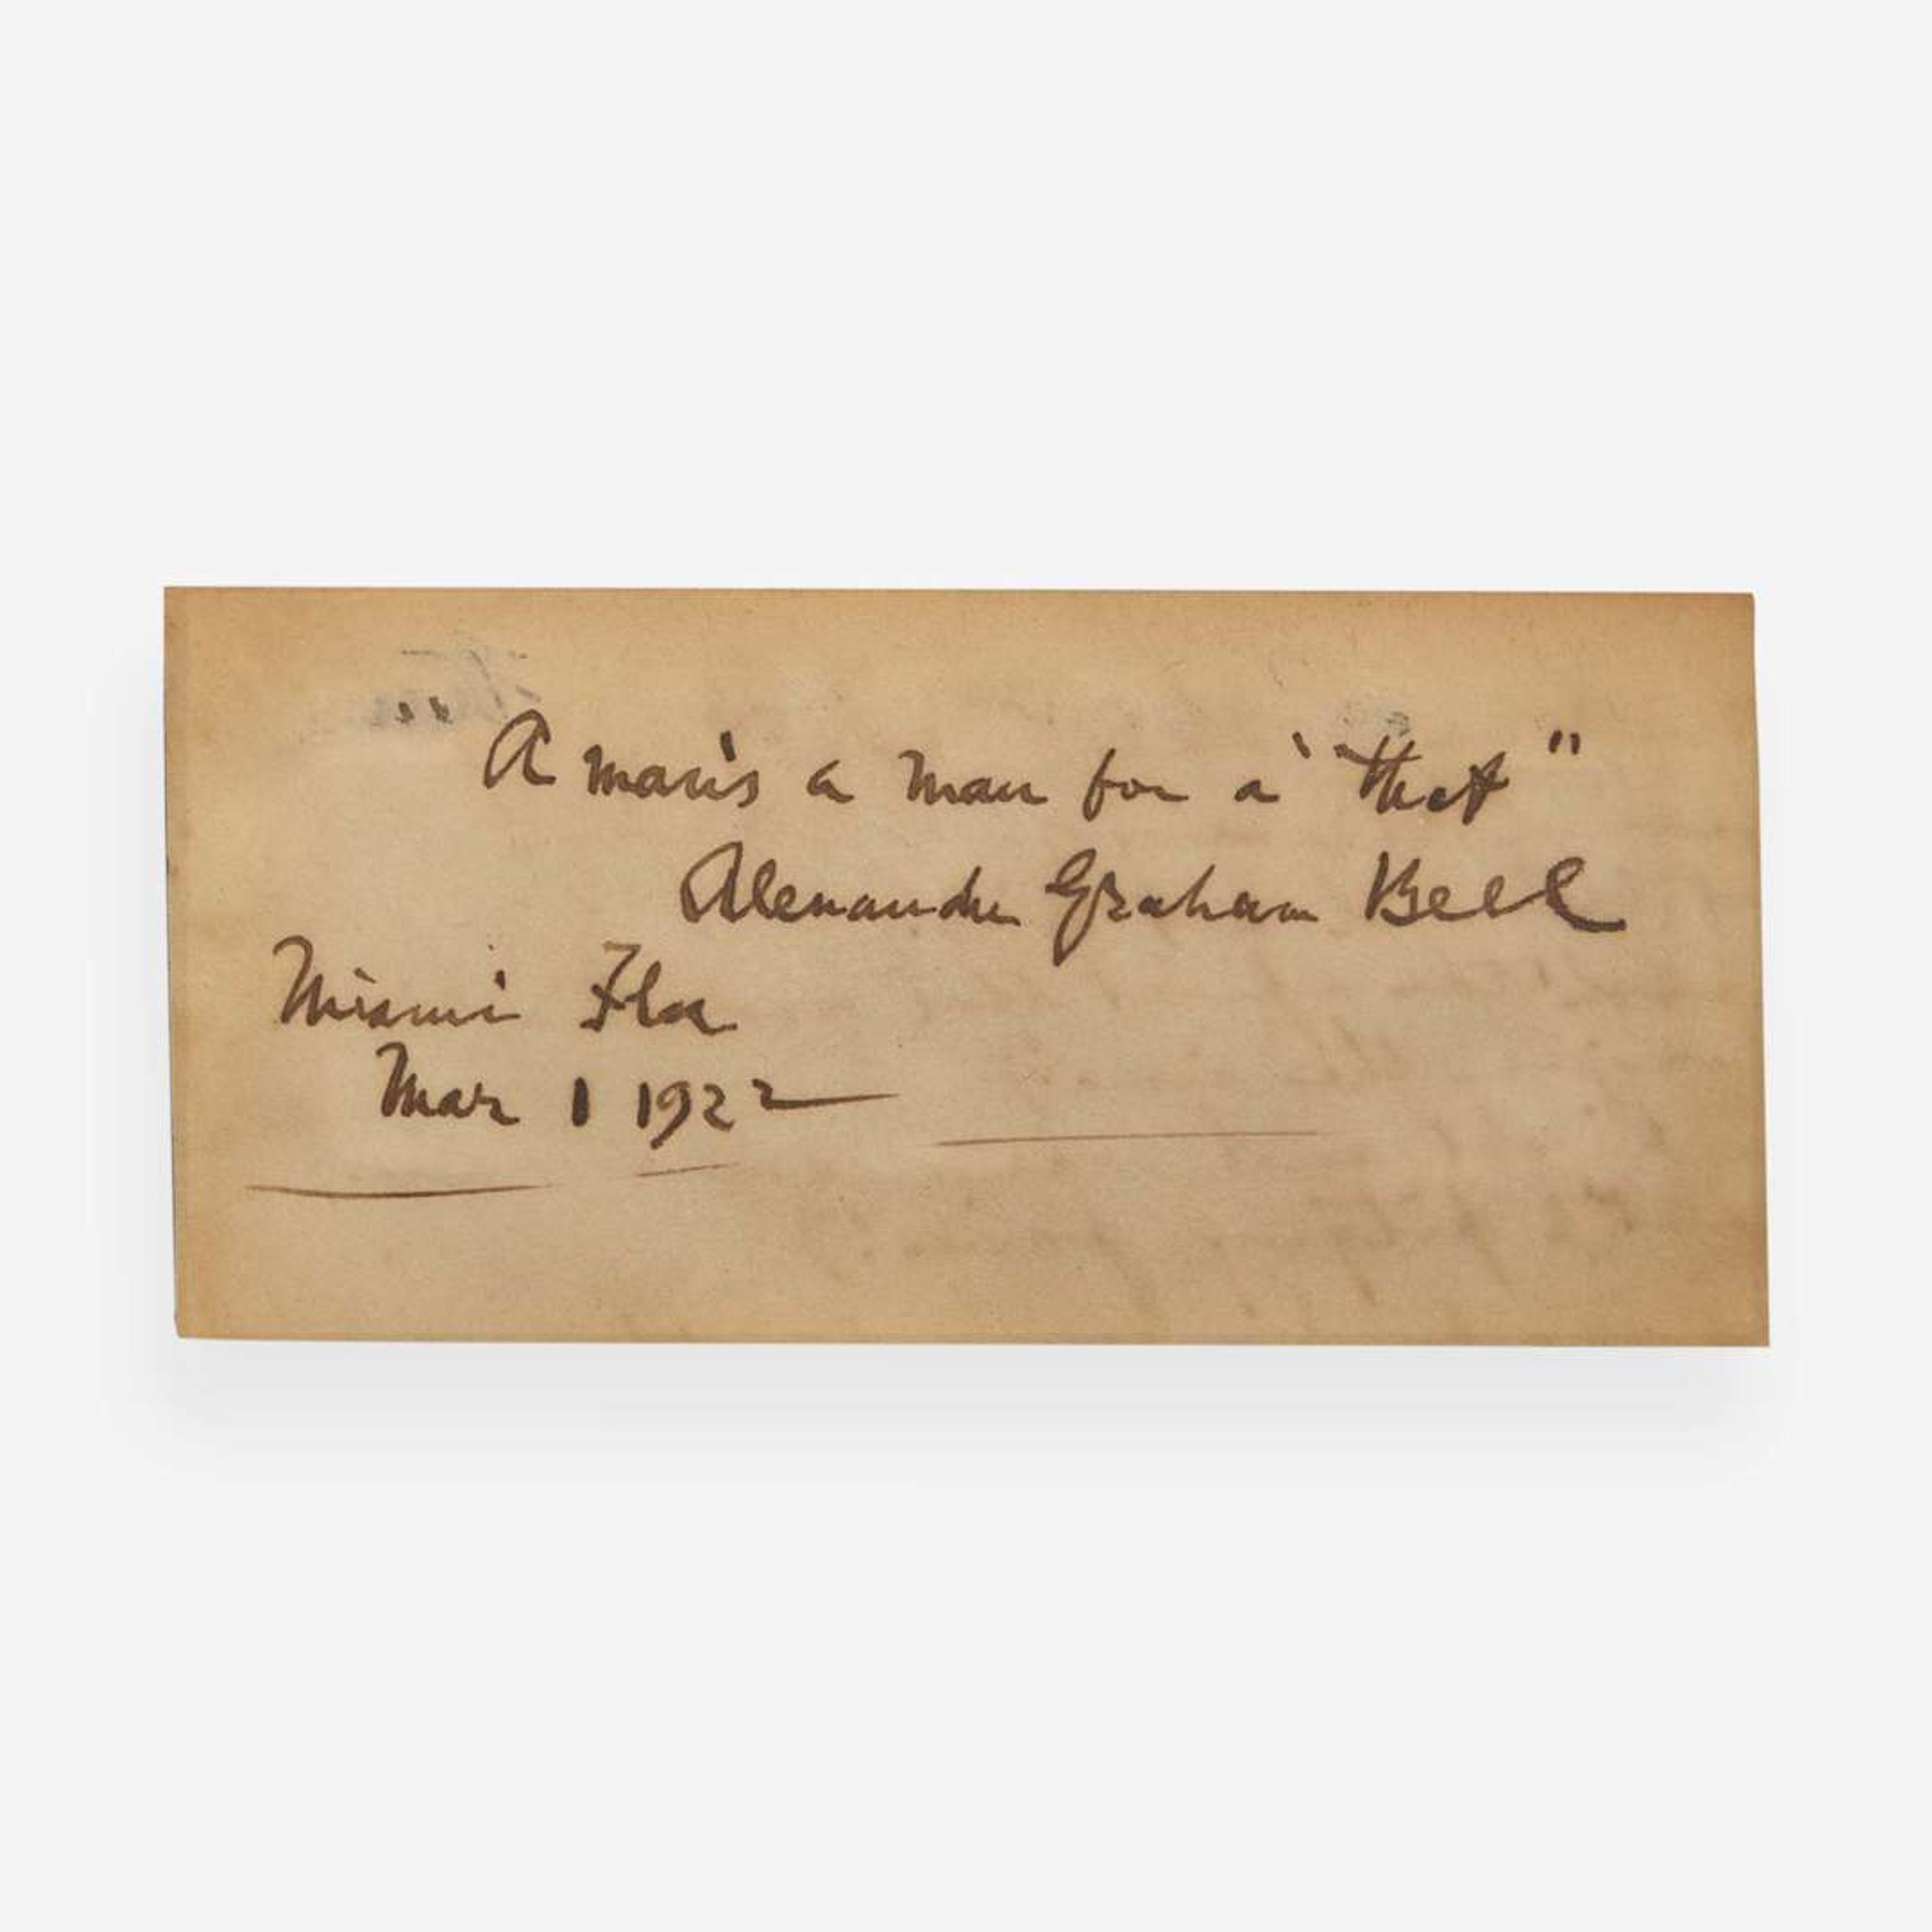 "A man's a man for a' that"
Alexander Graham Bell
Miami Fla
Mar 1 1922